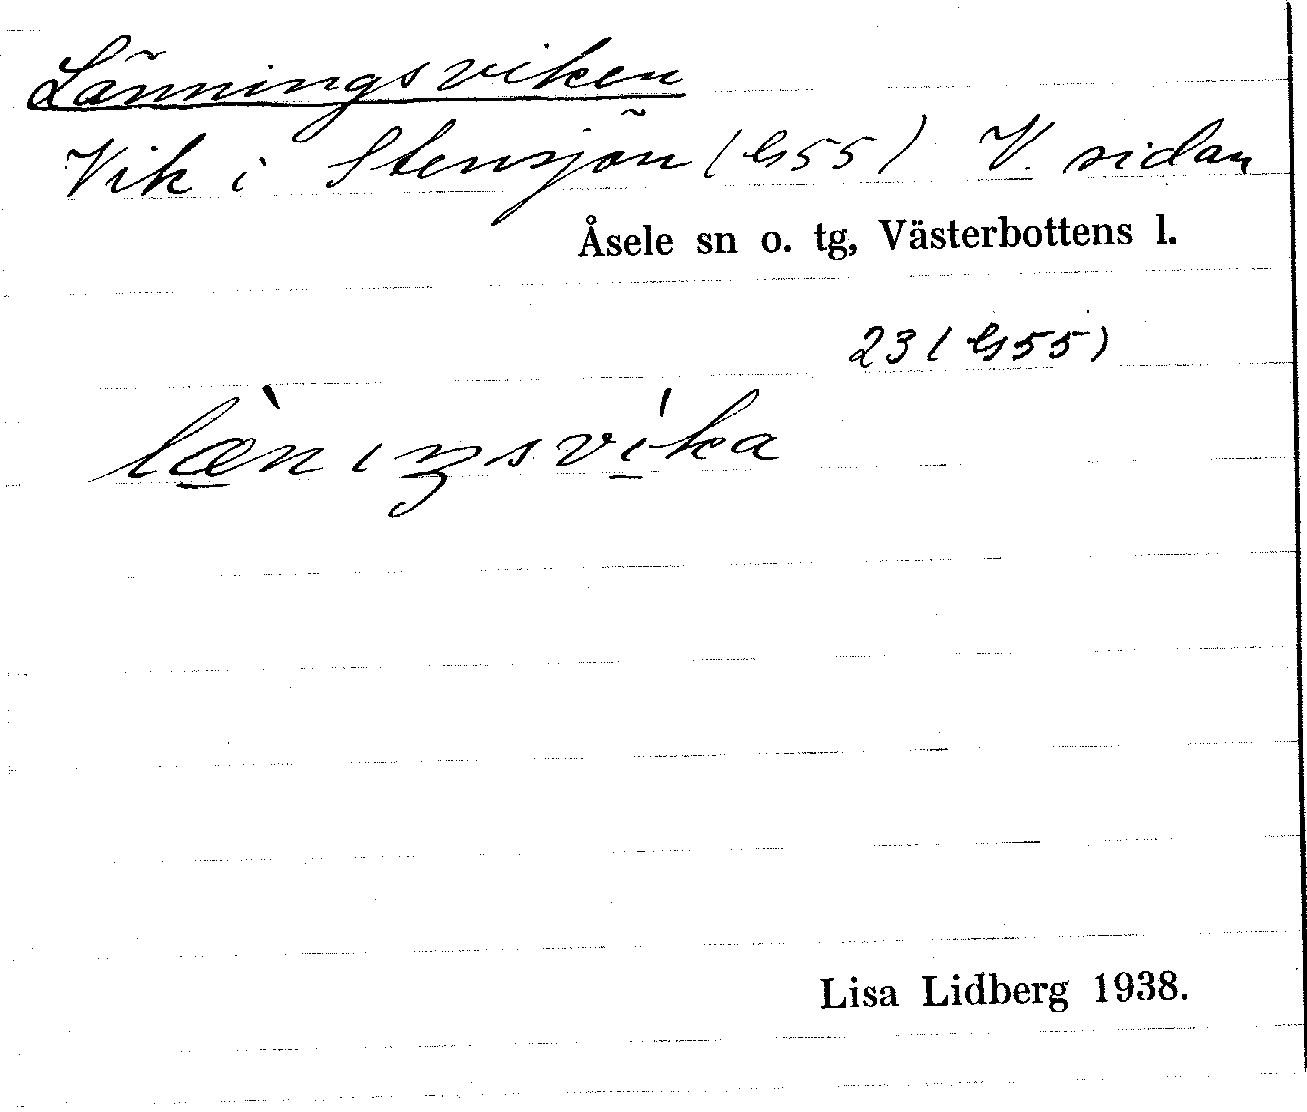 Länningsviken
Vik i Stensjön (G55) V. sidan
Åsele sn o. tg, Västerbottens l.
23 (G55)
Lisa Lidberg 1938.